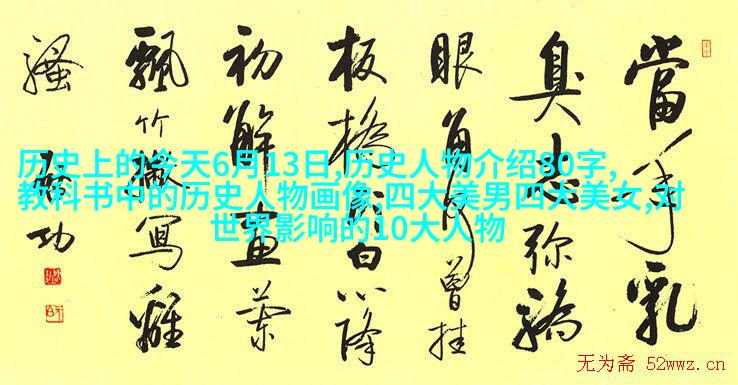 當年乳
臭志弥驕
眼角何曾挂
板橋頭白心降
初解畫蘭
飄竹撇寫離
騷 啟功
历史上的今天6月13日,历史人物介绍80字,
教科书中的历史人物画像,四大美男四大美女,对
世界影响的10大人物
无为斋 52wwz.cn